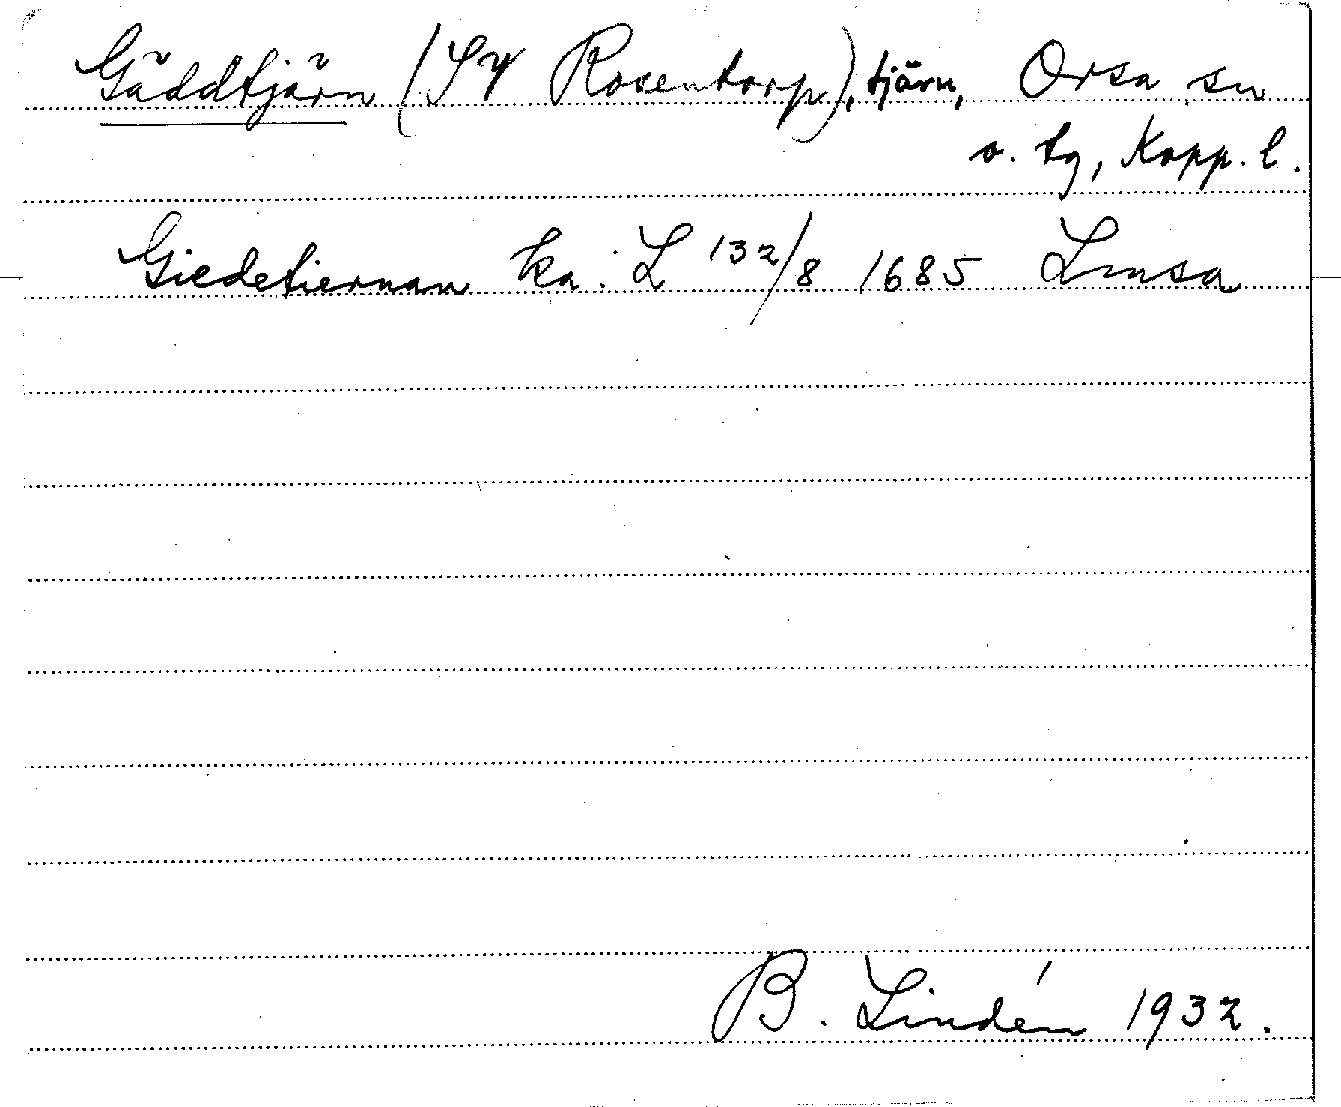 Gäddtjärn (SV Rosentorp), tjärn, Orsa sn
o. tg, Kopp. l.
Giedetiernan ka: L 132/8 1685 Lmsa
B. Lindén 1932.